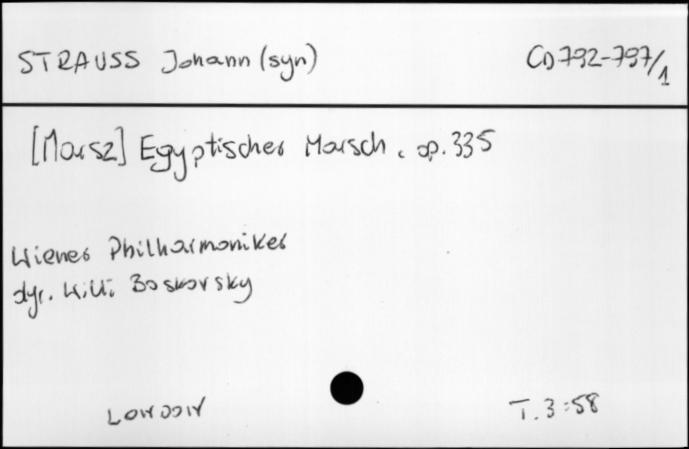 STRAUSS Johann (syn) CD 792-797/1
[Marsz] Egyptischer Marsch, op. 335
Wiener Philharmoniker
dyr. Willi Boskovsky
LONDON T. 3:58